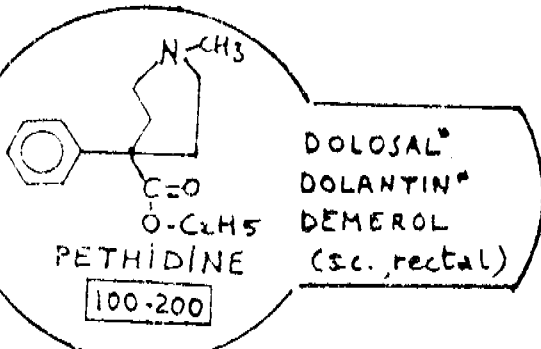 N-CH3
C=O
O-C2H5
PETHIDINE
100-200
DOLOSAL*
DOLANTIN*
DEMEROL
(s.c., rectal)